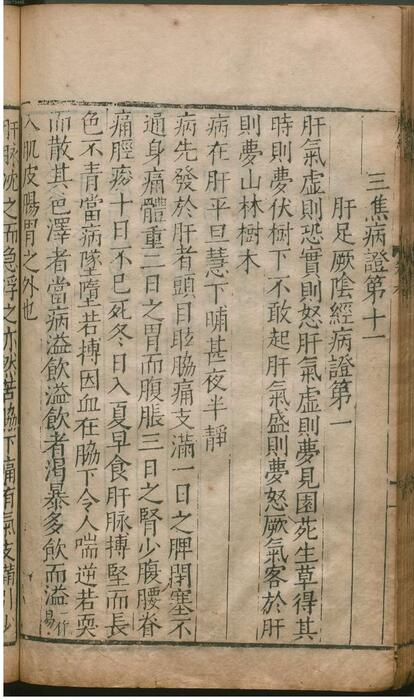 三焦病證第十一
肝足厥陰經病證第一
肝氣虛則恐實則怒肝氣虛則夢見園苑生草得其
時則夢伏樹下不敢起肝氣盛則夢怒厥氣客於肝
則夢山林樹木
病在肝平旦慧下晡甚夜半靜
病先發於肝者頭目眩脇痛支滿一日之脾閉塞不
通身痛體重二日之胃而腹脹三日之腎少腹腰脊
痛脛痠十日不已死冬日入夏早食肝脉搏堅而長
色不青當病墜墮若搏因血在脇下令人喘逆若耎
而散其色澤者當病溢飲溢飲者渴暴多飲而溢一作易
入肌皮腸胃之外也
肝脉沈之而急浮之亦然苦脇下痛有氣支滿引少